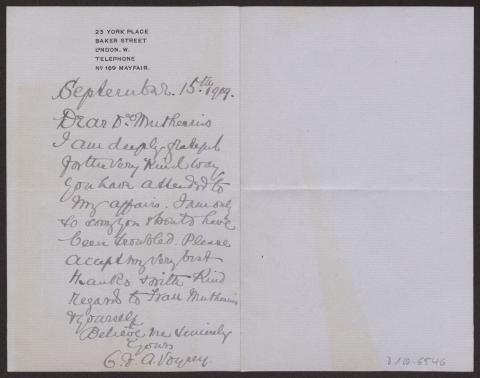 23 YORK PLACE
BAKER STREET
LONDON. W.
TELEPHONE
No 169 MAYFAIR.
September. 15.th 1909.
Dear Dr Muthesius
I am deeply grateful
for the very kind way
you have attended to
my affairs. I am only
so sorry you should have
been troubled. Please
accept my very best
thanks & with kind
regards to Frau Muthesius
& yourself
Believe me sincerely
Yours
C. F. A. Voysey.